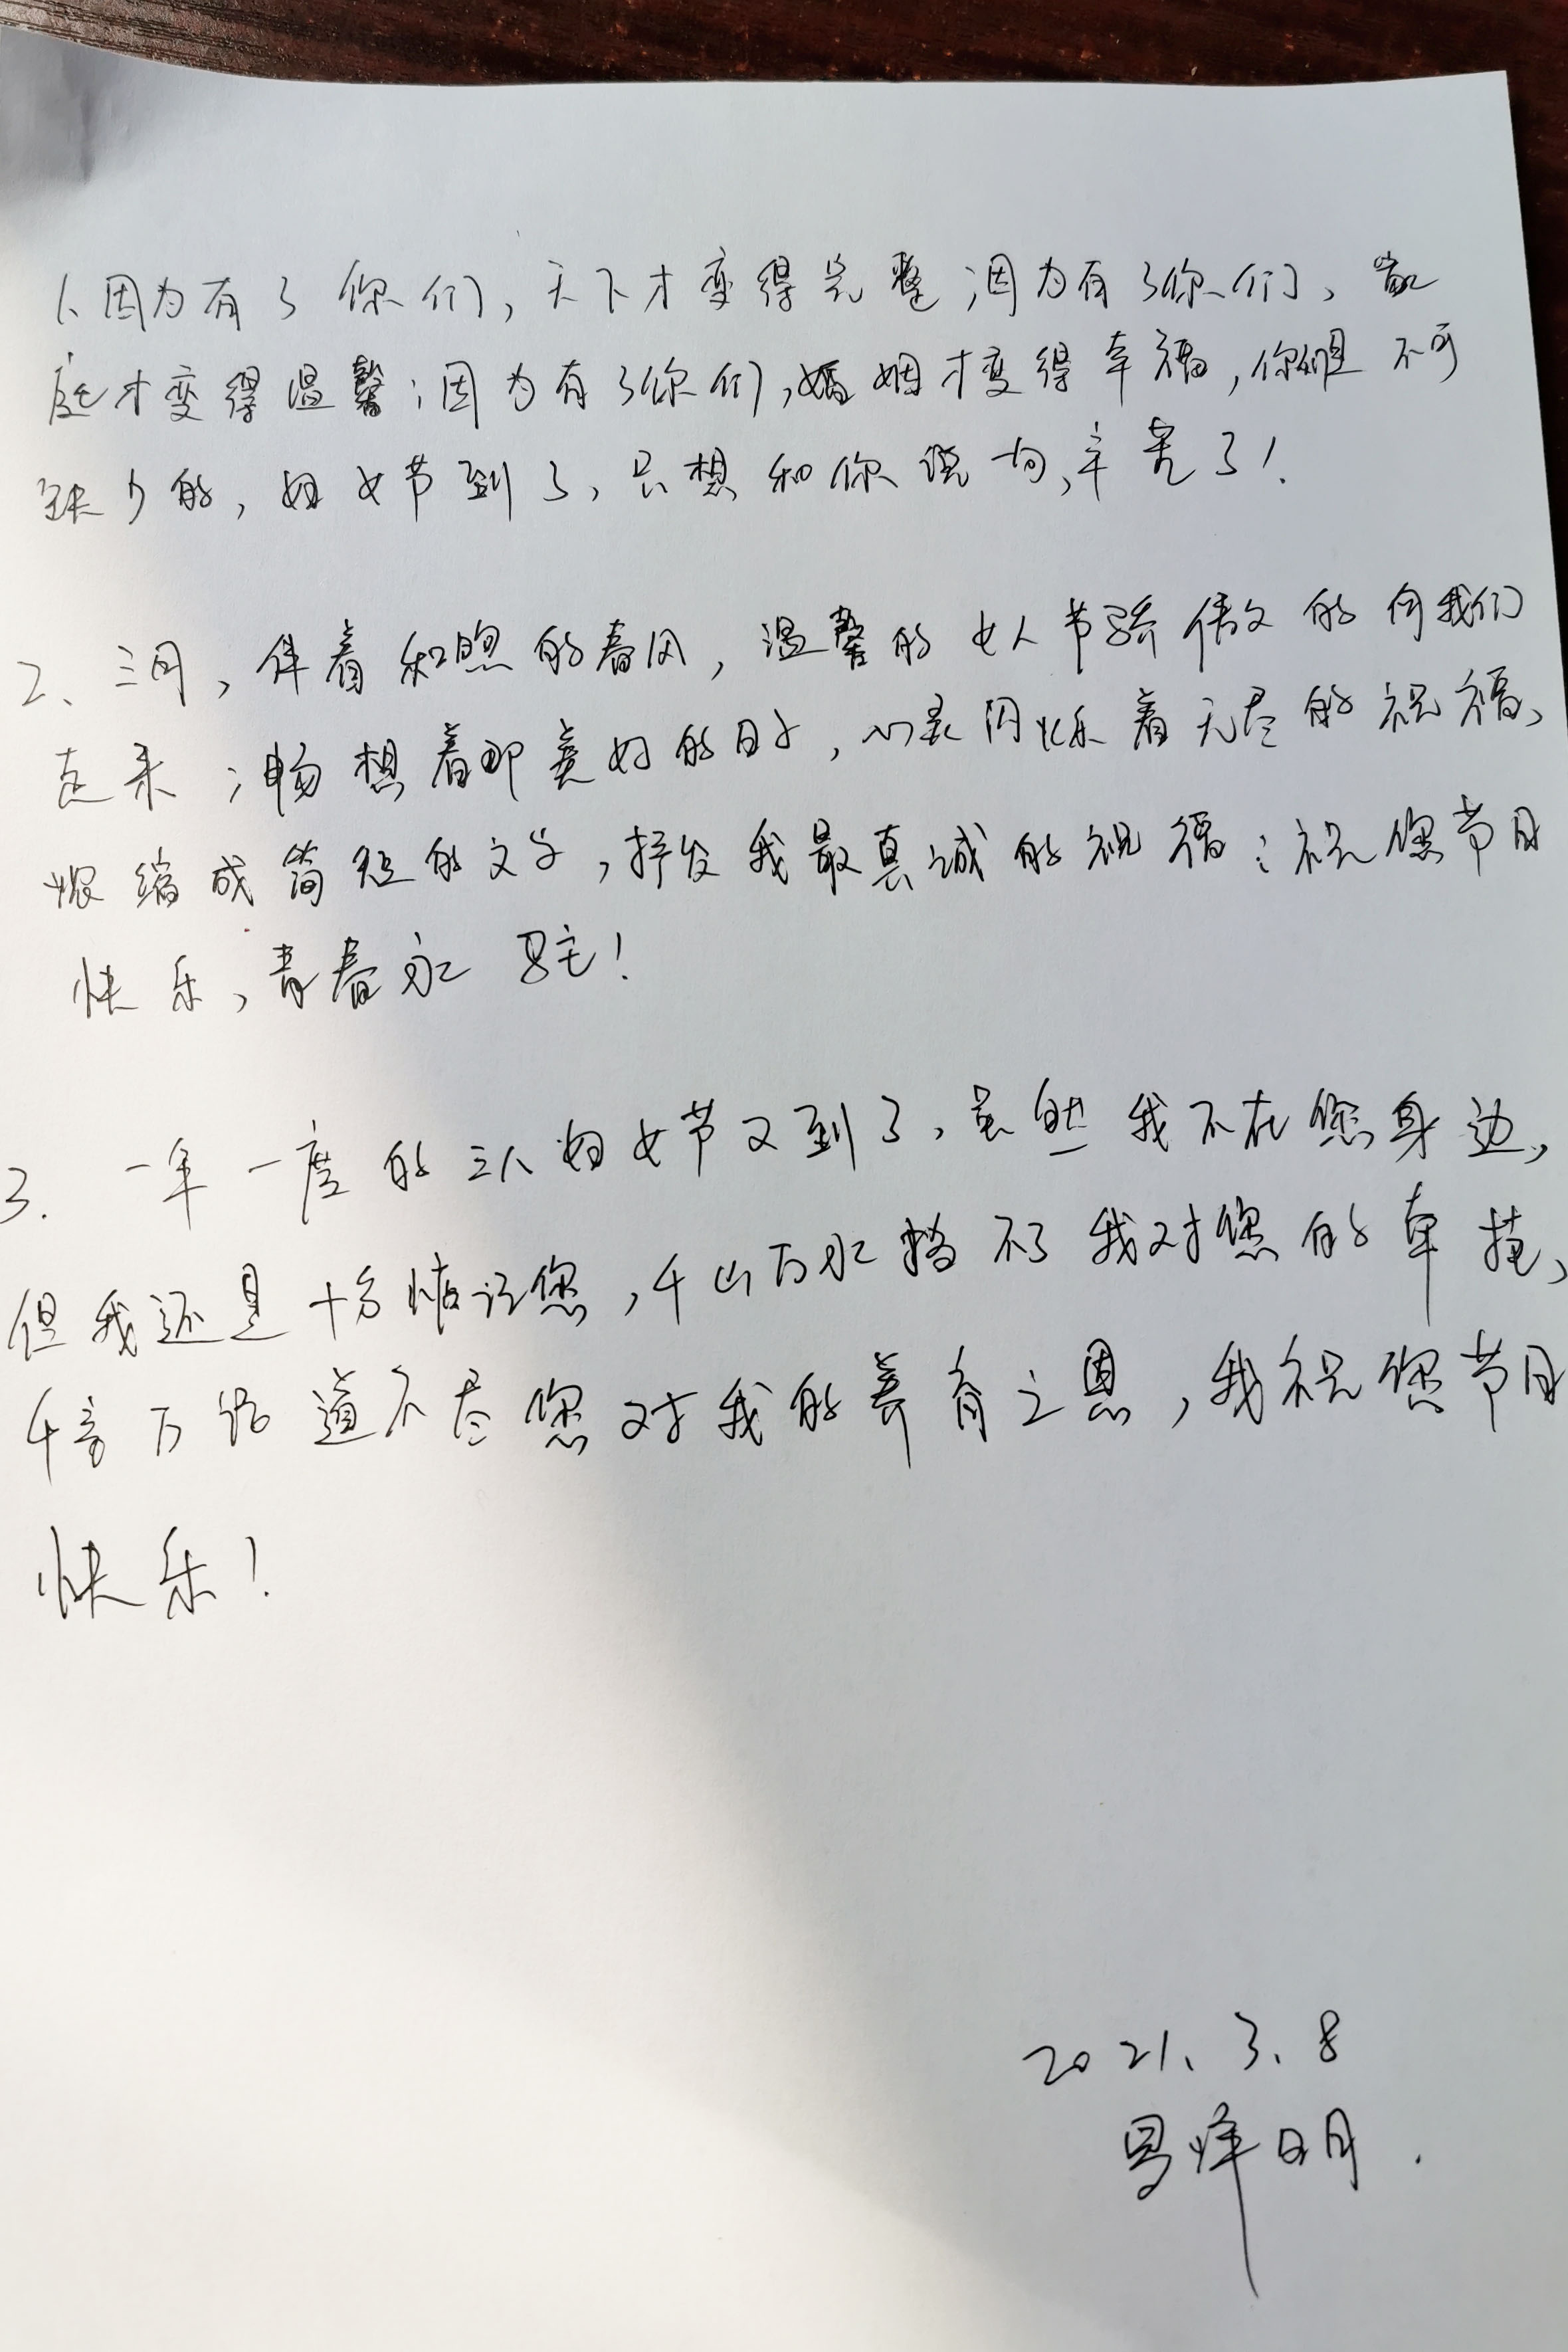 1、因为有了你们,天下才变得完整;因为有了你们、家
庭才变得温馨;因为有了你们,婚姻才变得幸福,你们是不可
缺少的,妇女节到了,只想和你说句,辛苦了!
2、三月,伴着和煦的春风,温馨的女人节骄傲的向我们
走来;畅想着那美好的日子,心灵闪烁着无尽的祝福、
浓缩成简短的文字,抒发我最真诚的祝福:祝您节日
快乐,青春永驻!
3. 一年一度的三八妇女节又到了,虽然我不在您身边,
但我还是十分惦记您,千山万水挡不了我对您的牵挂,
千言万语道不尽您对我的养育之恩,我祝您节日
快乐!
2021、3、8
明.